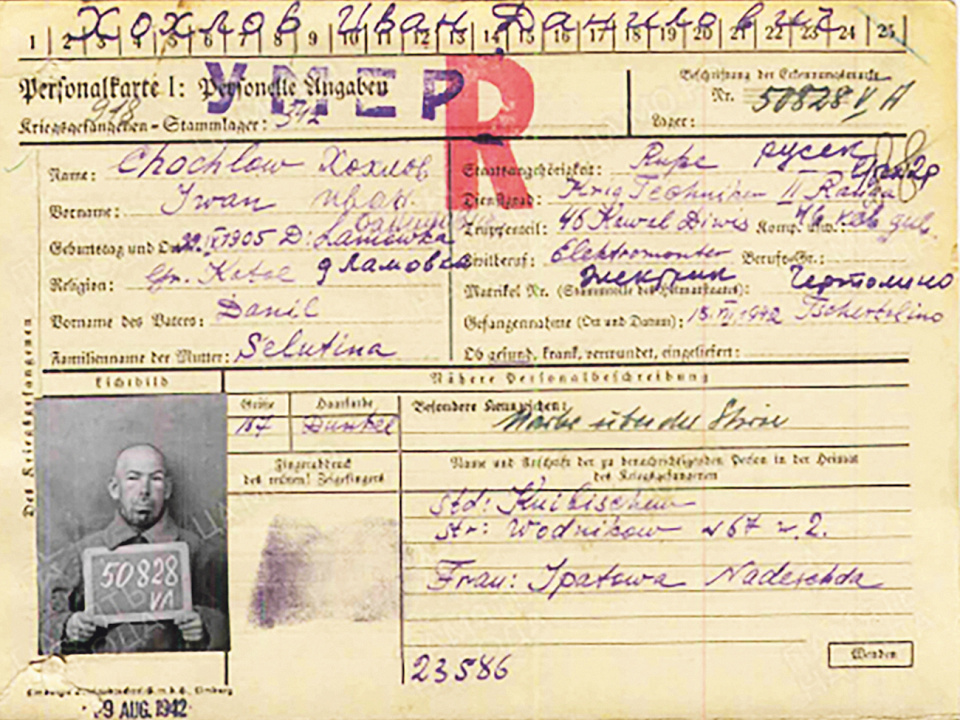 Хохлов Иван Данилович
1 2 3 4 5 6 7 8 9 10 11 12 13 14 15 16 17 18 19 20 21 22 23 24 25
Personalkarte I: Personelle Angaben
УМЕР
R
Kriegsgefangenen-Stammlager:
Beschriftung der Erkennungsmarke
Nr. 50828 V A
Lager:
Name: Chochlow Хохлов
Vorname: Iwan Иван
Geburtstag und 1905 D: Lamowka
Religion: gr. Katol д Ламовка
Vorname des Vaters: Danil
Familienname der Mutter: Selutina
Staatsangehörigkeit: Ruße русск
Dienstgrad: Krig Techniker II Ranga
Truppenteil: 46 Kawal Diwis Komp. usw.: 46 кав див.
Zivilberuf: Elektromonter Berufs-Gr.:
Matrikel Nr. (Stammrolle des Heimatstaates): Чертолино
Электрик
Gefangennahme (Ort und Datum): 1942 Tschertolino
Ob gesund, krank, verwundet, eingeliefert:
Des Kriegsgefangenen
Lichtbild
Nähere Personalbeschreibung
Größe
Haarfarbe
Dunkel
Besondere Kennzeichen:
Narbe über der Stirn
Fingerabdruck
des rechten! Zeigefingers
Name und Anschrift der zu benachrichtigenden Person in der Heimat
des Kriegsgefangenen
Std: Kuibischew
Str: Wodnikow N 67 2.
Frau: Ipatowa Nadeschda
50828
VA
23586
Wenden
9 AUG. 1942